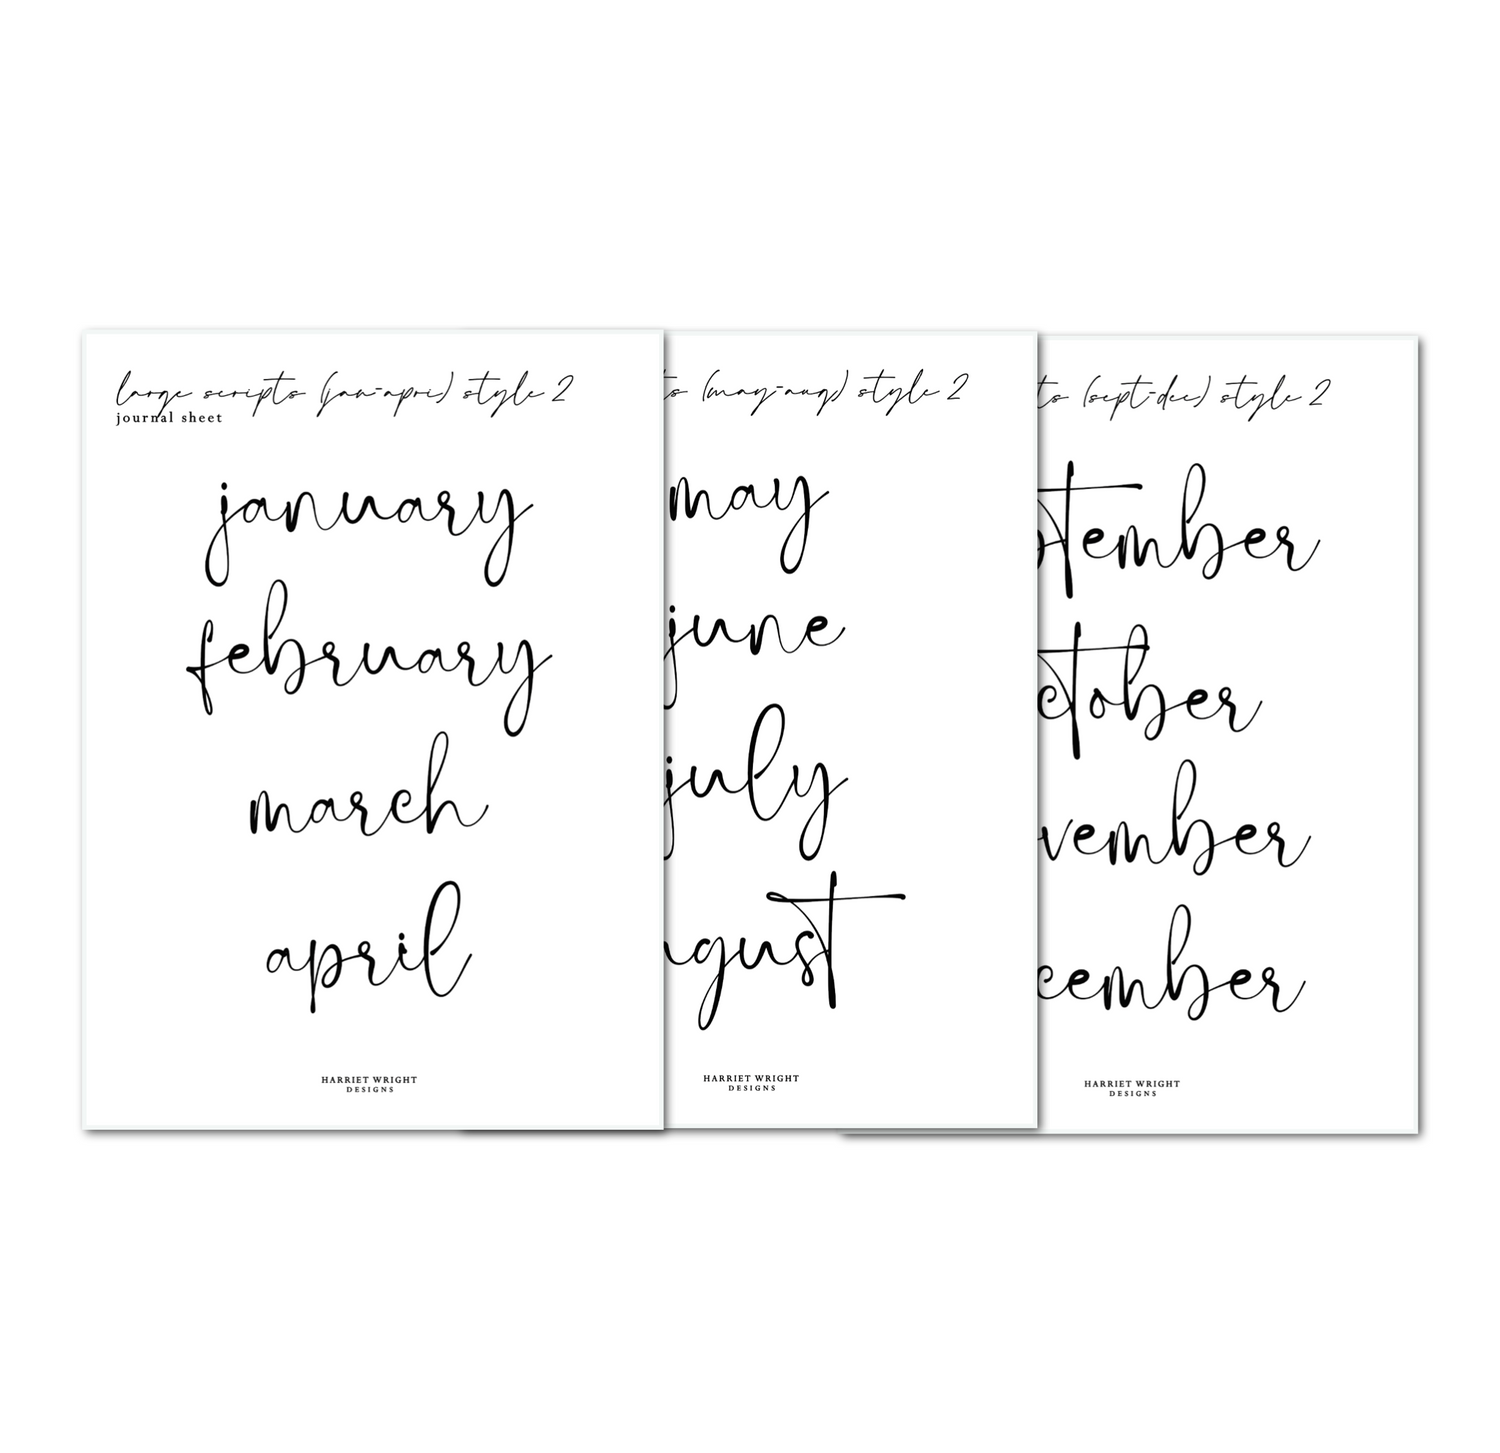 large scripts (jan-apri) style 2
journal sheet
january
february
march
april
HARRIET WRIGHT
DESIGNS
ts (may-aug) style 2
may
june
july
ugust
HARRIET WRIGHT
DESIGNS
ts (sept-dec) style 2
ptember
ctober
vember
cember
HARRIET WRIGHT
DESIGNS